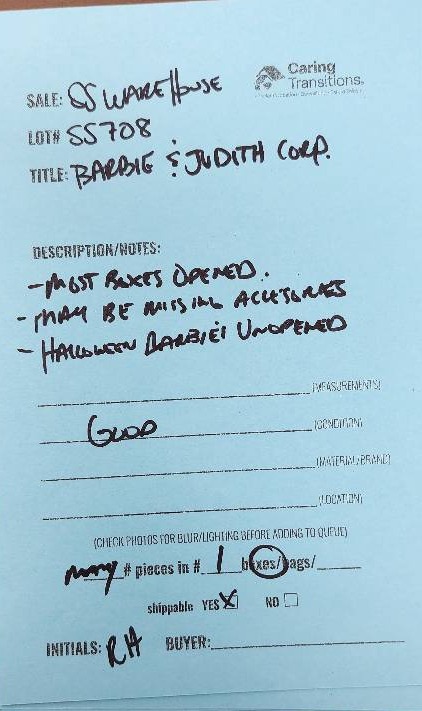 Caring
Transitions
SALE: SS WAREHOUSE
LOT# SS708
TITLE: BARBIE & JUDITH CORP.
DESCRIPTION/NOTES:
- MOST BOXES OPENED.
- MAY BE MISSING ACCESORIES
- HALLOWEEN BARBIES UNOPENED
(MEASUREMENTS)
GOOD (CONDITION)
(MATERIAL/BRAND)
(LOCATION)
(CHECK PHOTOS FOR BLUR/LIGHTING BEFORE ADDING TO QUEUE)
many # pieces in # 1 boxes/bags/
shippable YES X NO
INITIALS: RH BUYER: